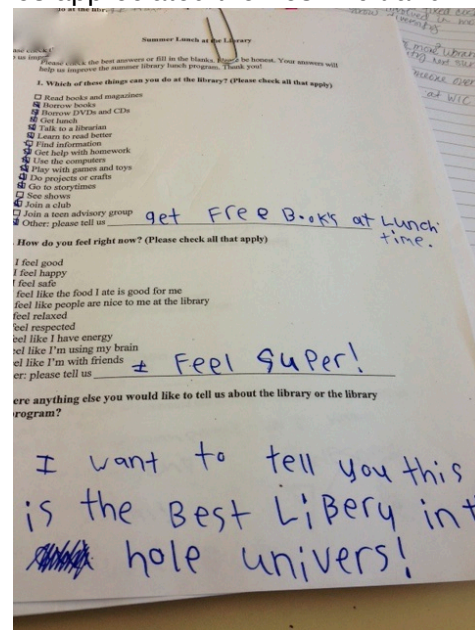 Summer Lunch at the Library
Please check the best answers or fill in the blanks. Please be honest. Your answers will
help us improve the summer library lunch program. Thank you!
1. Which of these things can you do at the library? (Please check all that apply)
Read books and magazines
Borrow books
Borrow DVDs and CDs
Get lunch
Talk to a librarian
Learn to read better
Find information
Get help with homework
Use the computers
Play with games and toys
Do projects or crafts
Go to storytimes
See shows
Join a club
Join a teen advisory group
Other: please tell us get Free Books at Lunch
time.
How do you feel right now? (Please check all that apply)
I feel good
I feel happy
I feel safe
feel like the food I ate is good for me
feel like people are nice to me at the library
feel relaxed
feel respected
eel like I have energy
el like I'm using my brain
el like I'm with friends
er: please tell us I Feel Super!
ere anything else you would like to tell us about the library or the library
rogram?
I want to tell you this
is the Best LiBery int
hole univers!
at WIC